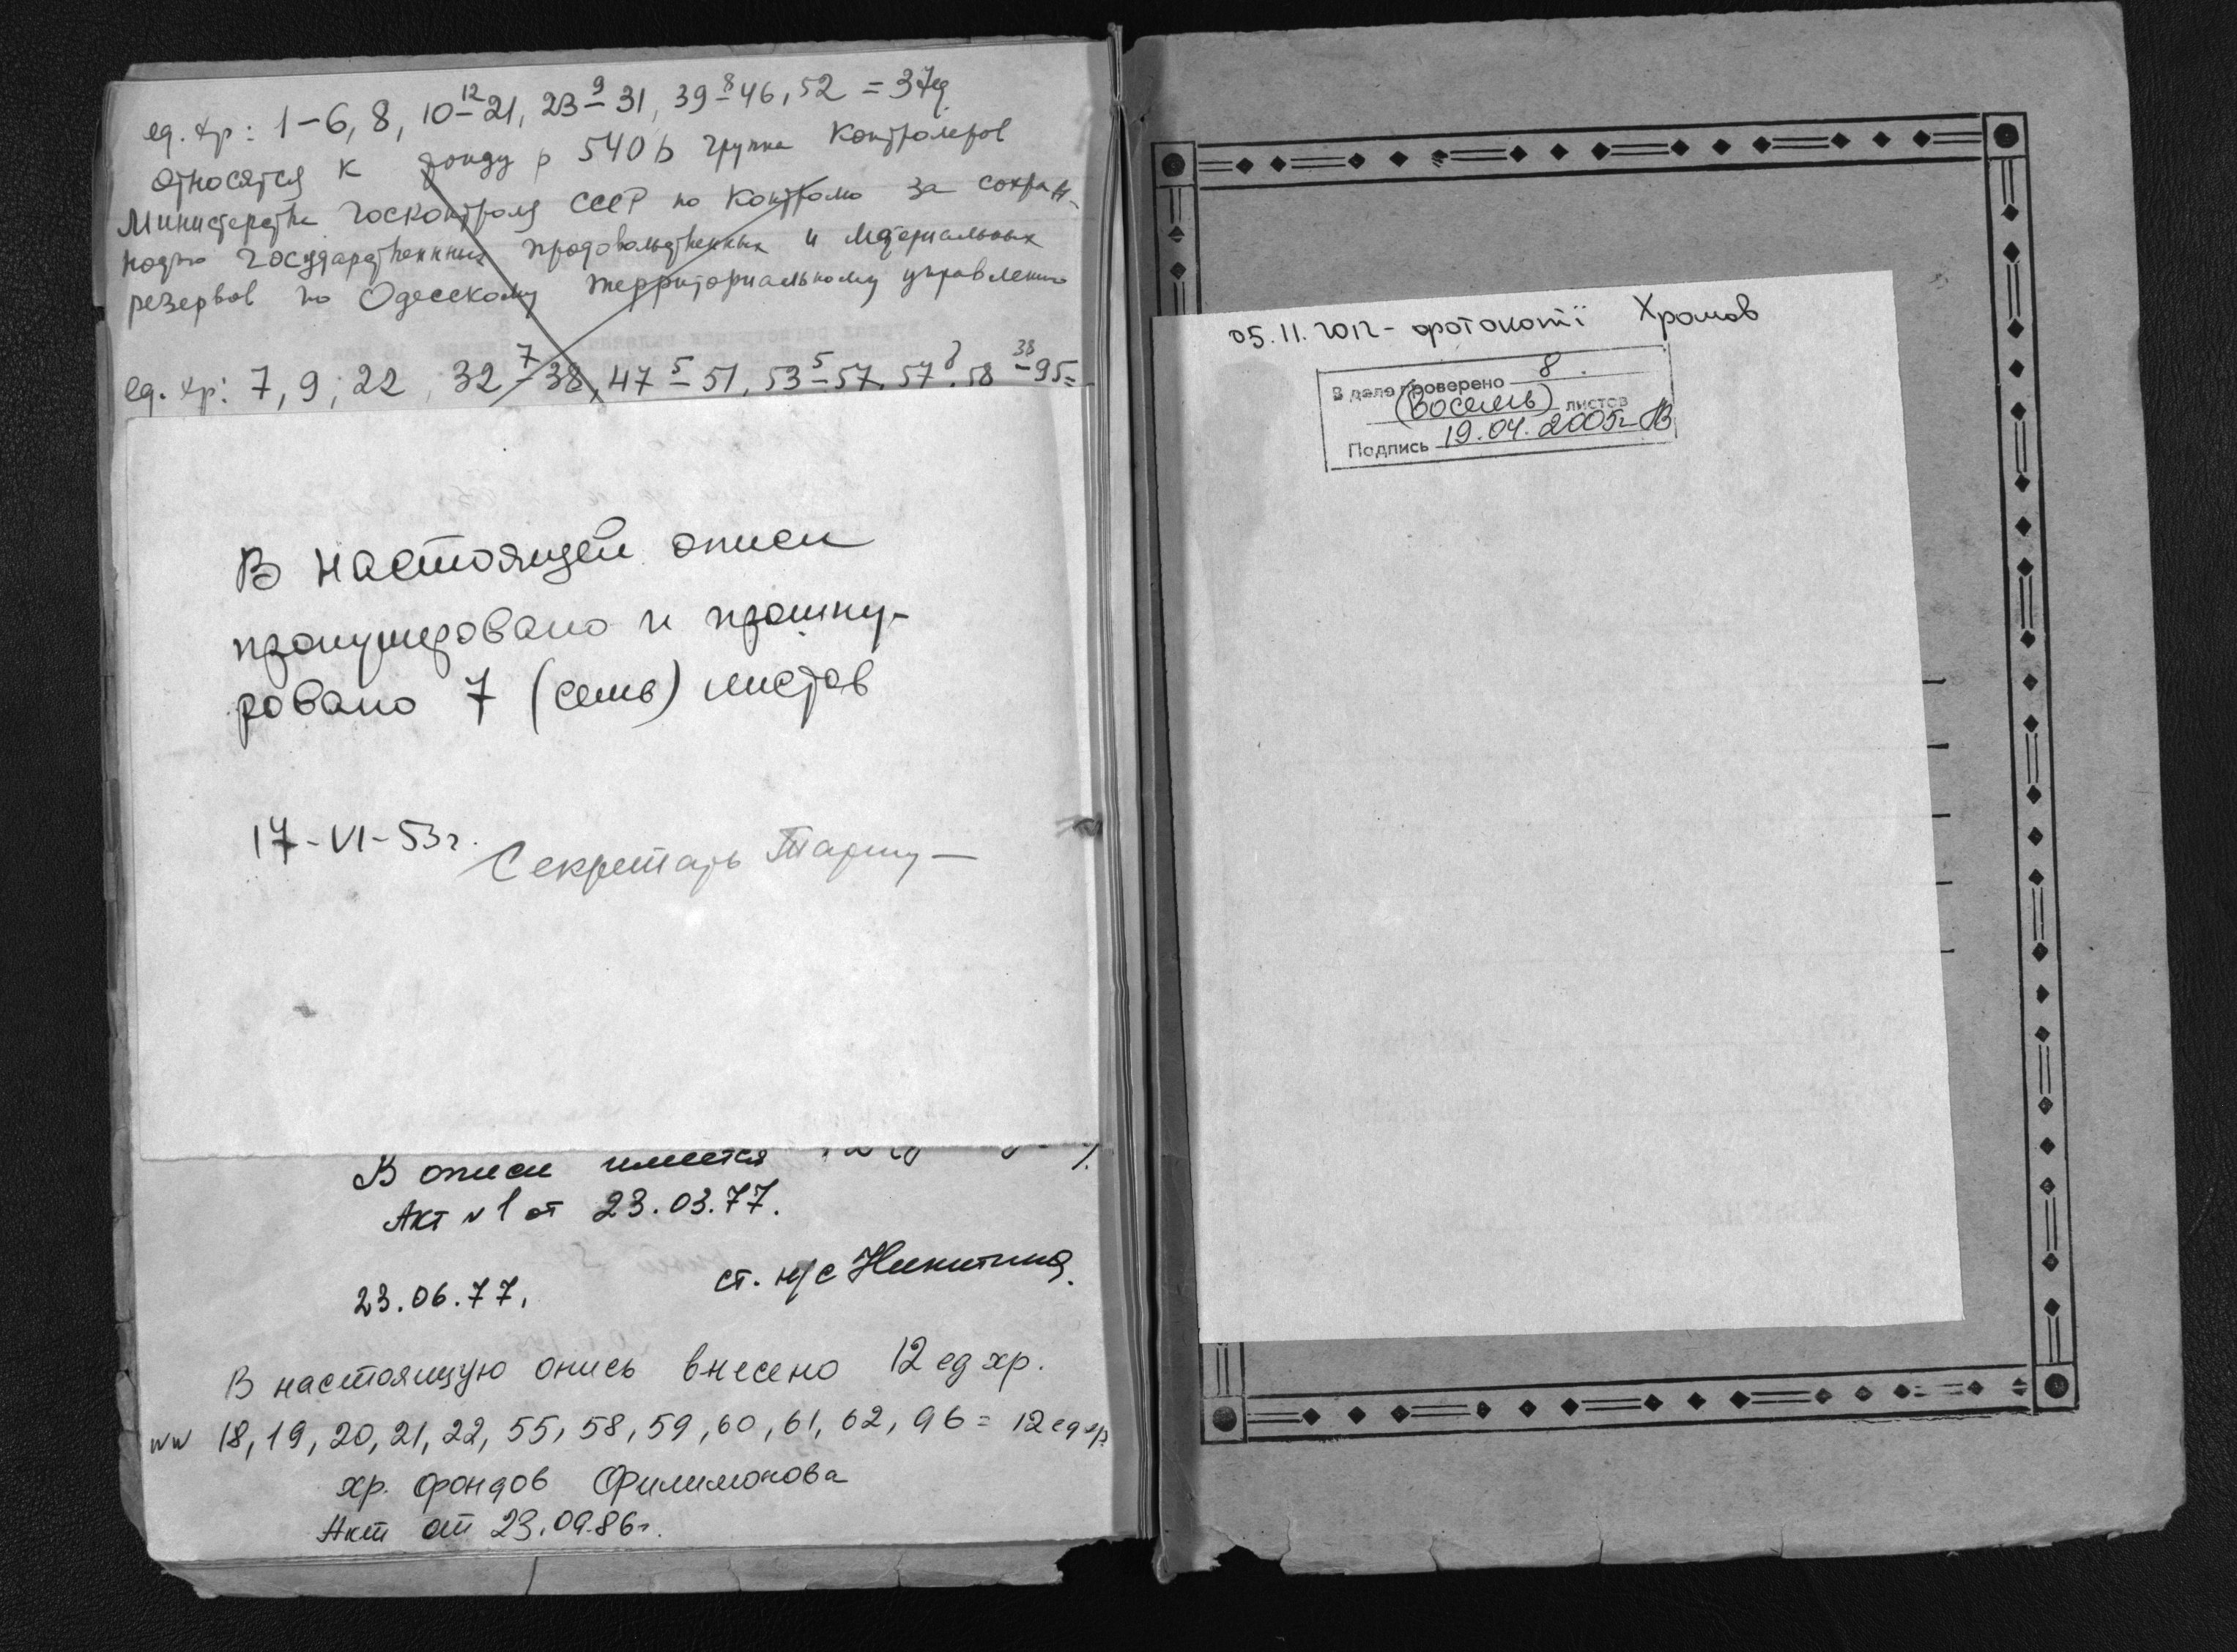 ед. хр: 1-6, 8, 10-21, 23-31, 39-46, 52 = 37ед
12 9 8
относятся к фонду р 5406 группа контролеров
Министерства Госконтроля СССР по контролю за сохран-
ностью государственных продовольственных и материальных
резервов по Одесскому территориальному управлению
ед. хр: 7, 9, 22, 32-38, 47-51, 53-57, 57, 58-95=
7 5 5 38
В настоящей описи
пронумеровано и прошну-
ровано 7 (семь) листов
17-VI-53г.
Секретарь
В описи имеется
Акт N 1 от 23.03.77.
23.06.77.
ст. н/с Никитина
В настоящую опись внесено 12 ед хр.
NN 18, 19, 20, 21, 22, 55, 58, 59, 60, 61, 62, 96 = 12 ед хр
хр. фондов Филимонова
Акт от 23.09.86г.
05.11.2012 - фотокопії Хромов
В деле проверено 8.
(восемь) листов
Подпись 19.04.2005г.